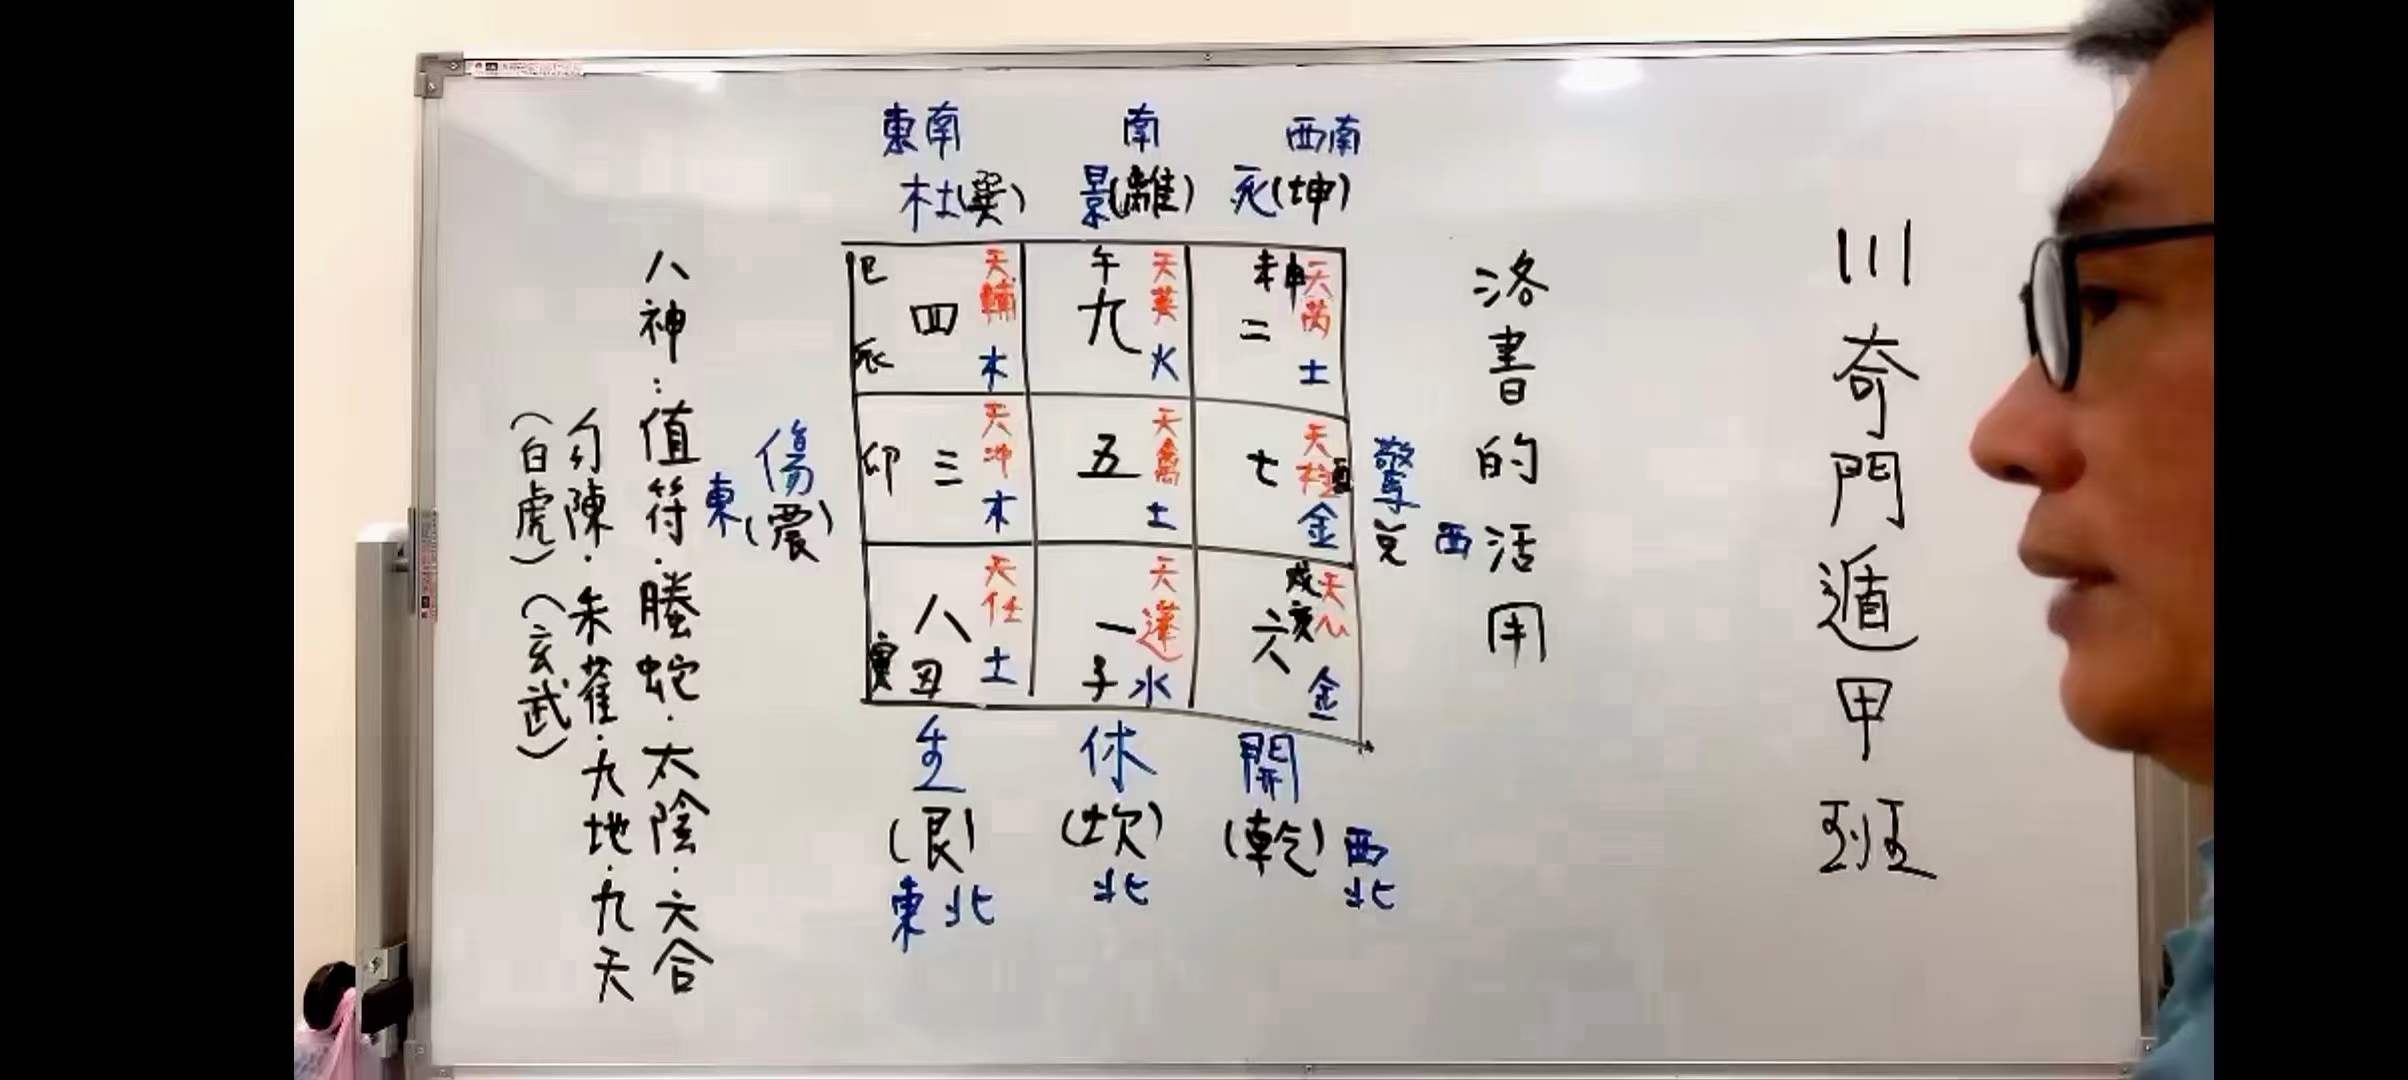 川奇門遁甲班
洛書的活用
東南
南
西南
杜(巽)
景(離)
死(坤)
巳
四
辰
天輔
木
午
九
天英
火
未申
二
天芮
土
東
傷
(震)
卯
三
天冲
木
五
天禽
土
七
天柱
酉
金
驚
兌
西
八
寅
丑
天任
土
一
子
天蓬
水
六
戌亥
天心
金
生
(艮)
東北
休
(坎)
北
開
(乾)
西北
八神:值符·螣蛇·太陰·六合
勾陳·朱雀·九地·九天
(白虎)(玄武)